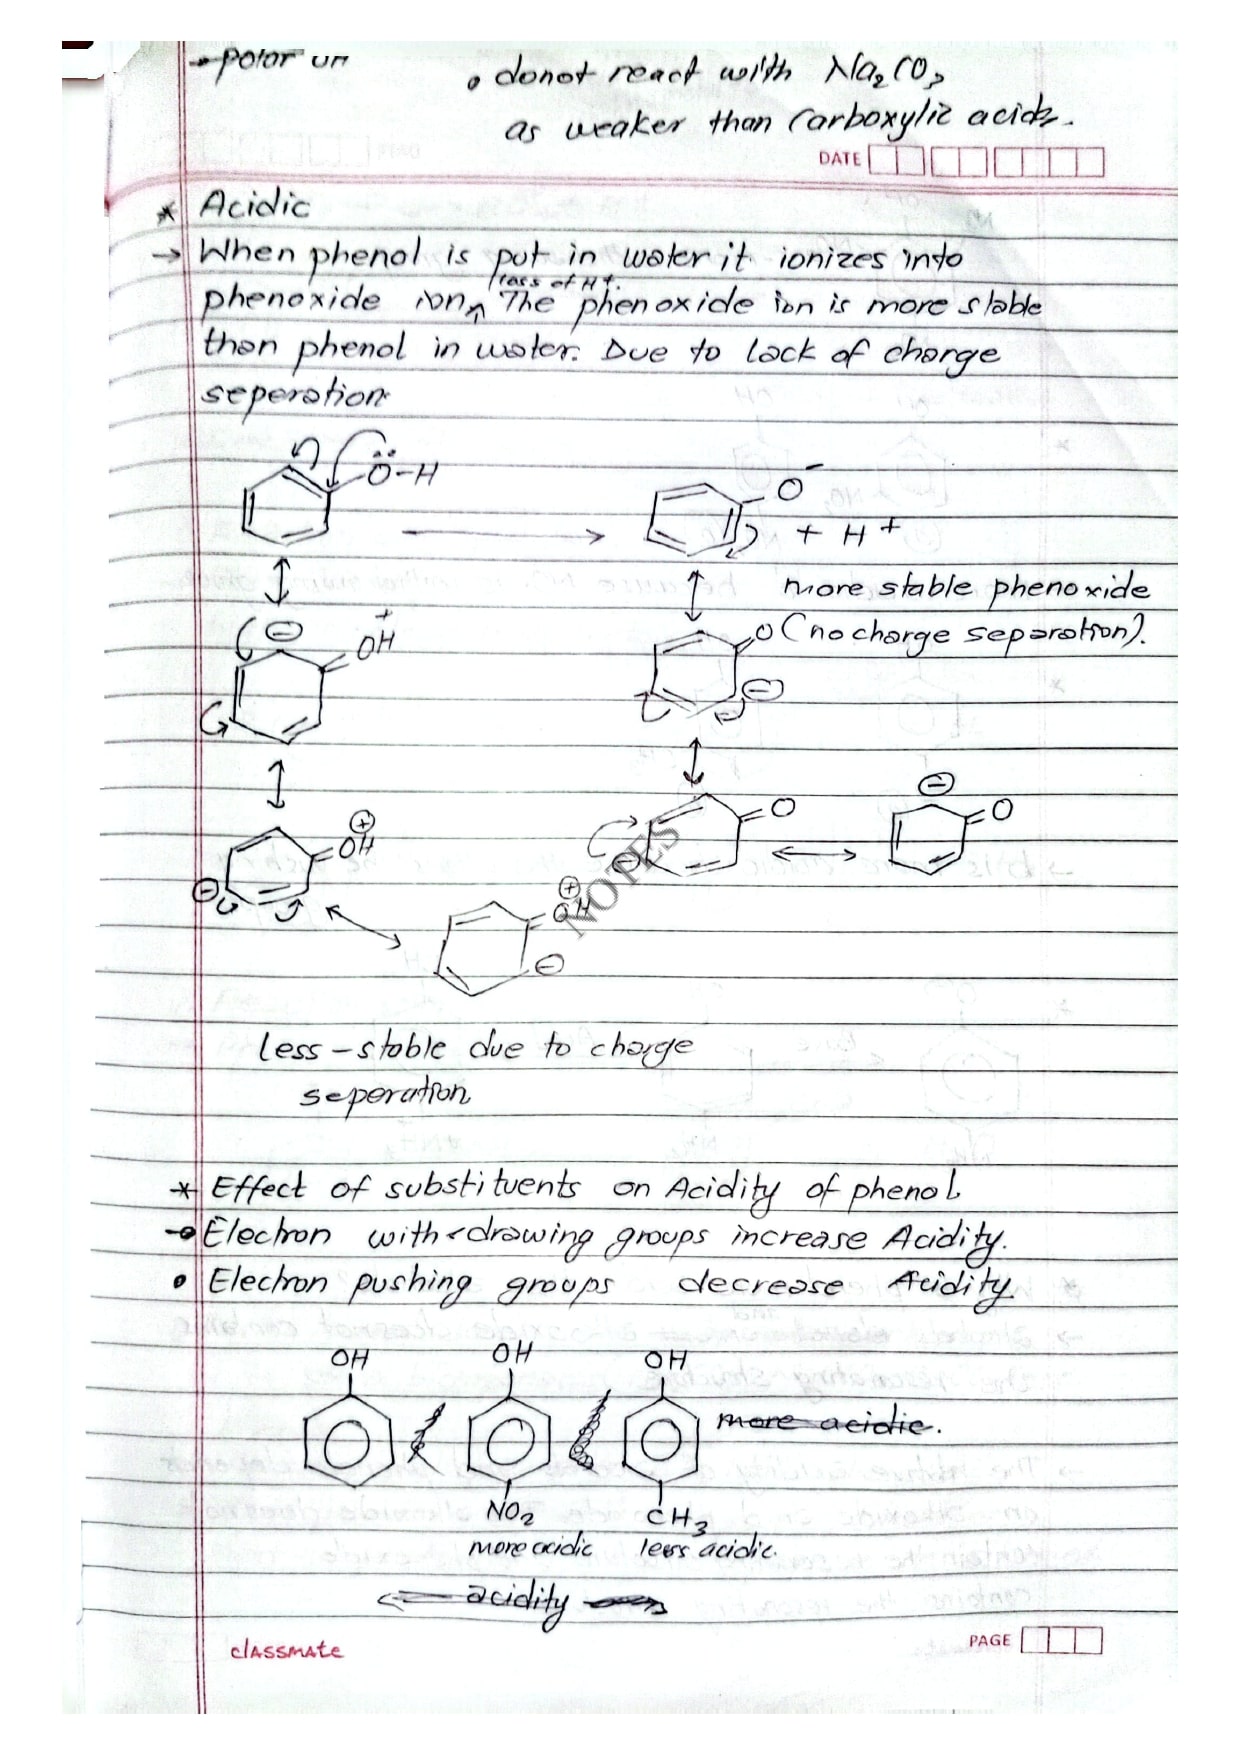 →polar un
• donot react with Na2CO3
as weaker than Carboxylic acids.
DATE
* Acidic
→ When phenol is put in water it ionizes into
loss of H+.
phenoxide ion, The phenoxide ion is more stable
than phenol in water. Due to lack of charge
seperation
Ö-H
O-
+ H+
more stable phenoxide
O (no charge separation).
+
OH
⊖
⊖
⊕
OH
⊖
O
⊖
⊖
O
⊕
OH
⊖
NOTES
less-stable due to charge
seperation
* Effect of substituents on Acidity of phenol
→ Electron with-drawing groups increase Acidity.
• Electron pushing groups decrease Acidity
OH OH OH
more acidic.
NO2 CH3
more acidic less acidic
acidity
classmate
PAGE